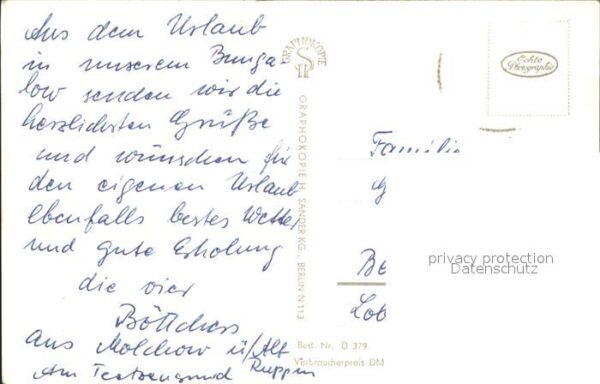 Aus dem Urlaub
in unserem Bunga
low senden wir die
herzlichsten Grüße
und wünschen für
den eigenen Urlaub
ebenfalls bestes Wetter
und gute Erholung
die vier
Böttchers
aus Molchow ü/Alt
Ruppin
Am
GRAPHOKOPIE
GRAPHOKOPIE H. SANDER KG., BERLIN N 113
Echte
Photographie
Familie
Be
Lob
privacy protection
Datenschutz
Best. Nr. D 379
Verbraucherpreis DM